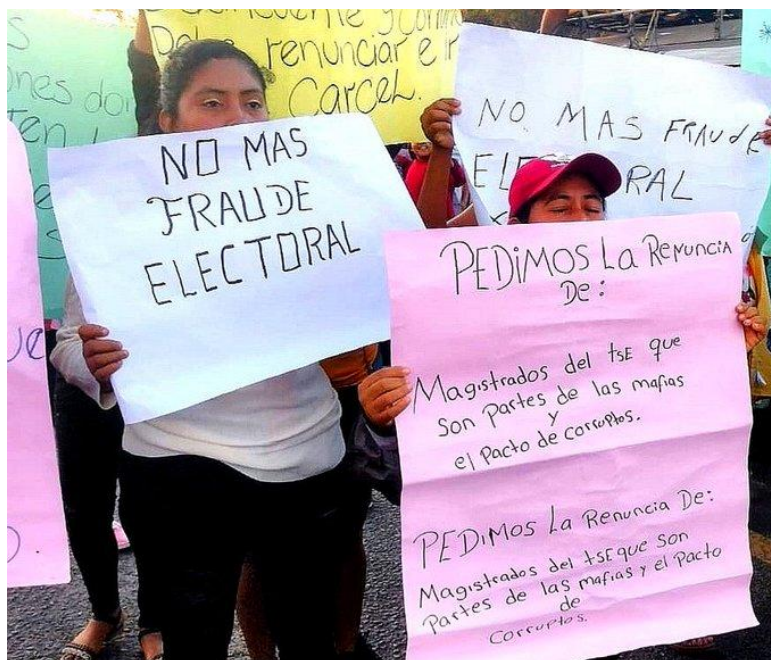 Delincuente y Corrupto
Debe renunciar e ir
Carcel.
ones don
ten
NO MAS
FRAUDE
ELECTORAL
NO MAS FRAUDE
ELECTORAL
PEDIMOS La Renuncia
De:
Magistrados del tSE que
son partes de las mafias
y
el Pacto de Corruptos.
PEDIMOS La Renuncia De:
Magistrados del tSE que son
Partes de las mafias y el Pacto
de
Corruptos.